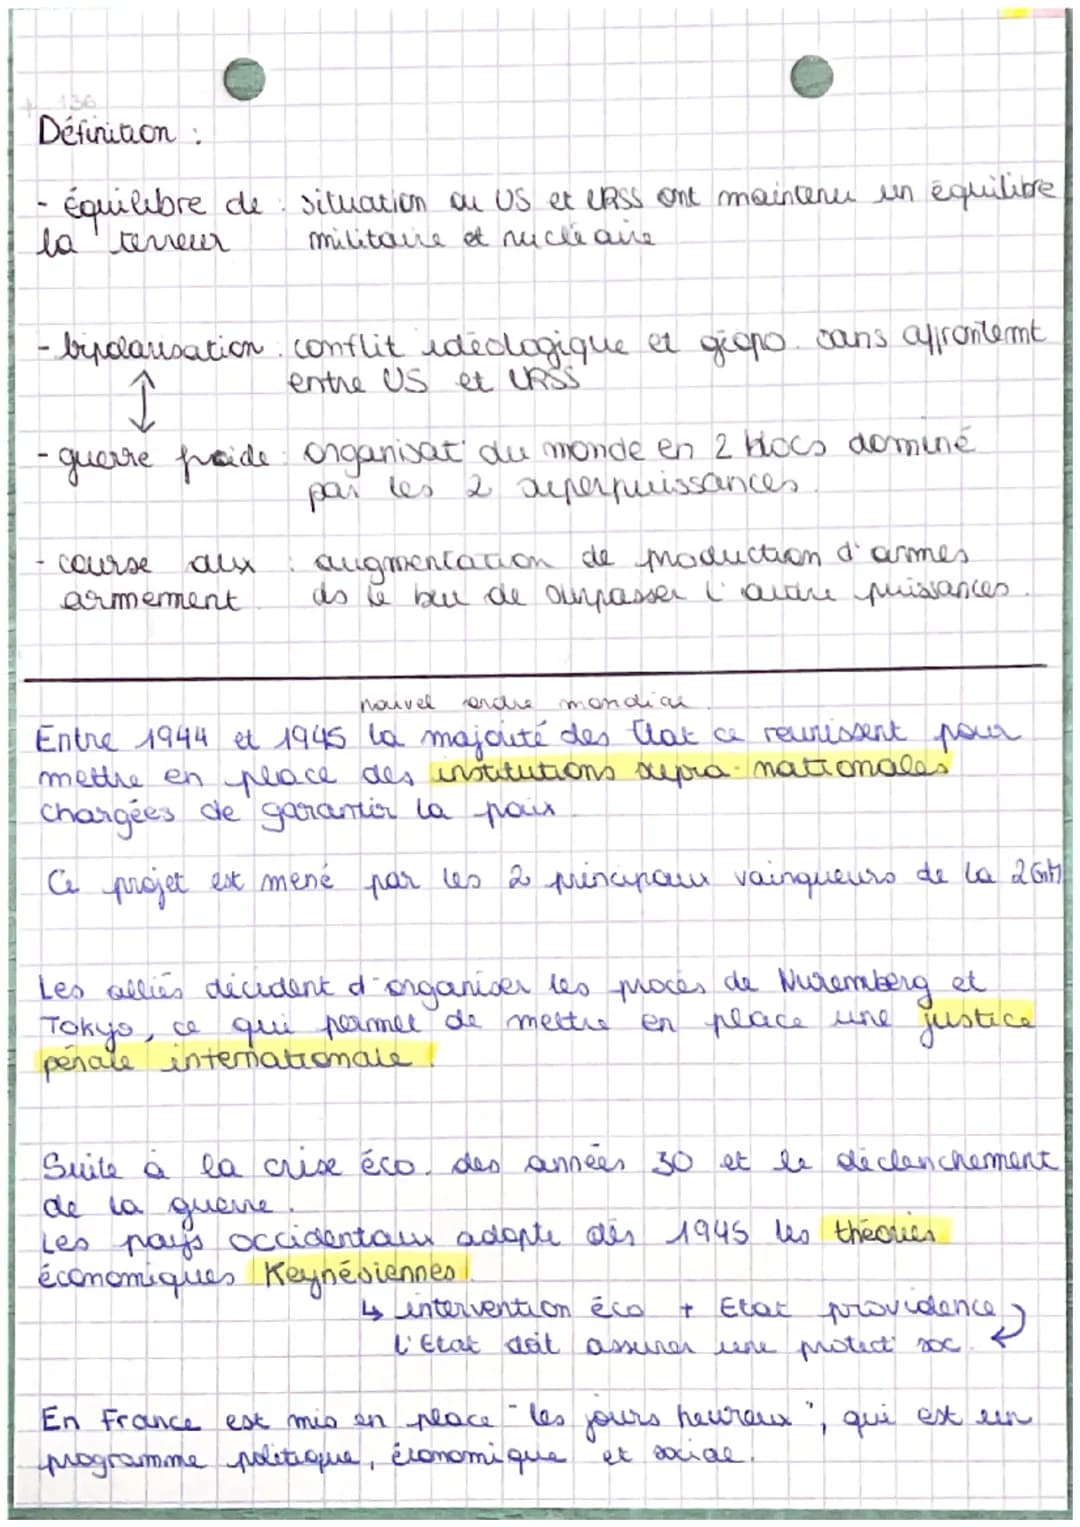 p. 136
Définition :
- équilibre de : situation ou US et URSS ont maintenu un équilibre
la terreur militaire et nucléaire
- bipolarisation : conflit idéologique et géopo. sans affrontemt
entre US et URSS
- guerre froide : organisat° du monde en 2 blocs dominé
par les 2 superpuissances.
- course aux : augmentation de production d'armes
armement ds le but de surpasser l'autre puissances.
nouvel ordre mondial
Entre 1944 et 1945 la majorité des Etat ce reunissent pour
mettre en place des institutions supra-nationales
chargées de garantir la paix.
Ce projet est mené par les 2 principaux vainqueurs de la 2GM
Les alliés décident d'organiser les procès de Nuremberg et
Tokyo, ce qui permet de mettre en place une justice
pénale internationale.
Suite à la crise éco. des années 30 et le déclenchement
de la guerre.
Les pays occidentaux adopte dès 1945 les théories
économiques Keynésiennes.
↳ intervention éco + Etat providence
l'Etat doit assurer une protect° soc.
En France est mis en place "les jours heureux", qui est un
programme politique, économique et social.